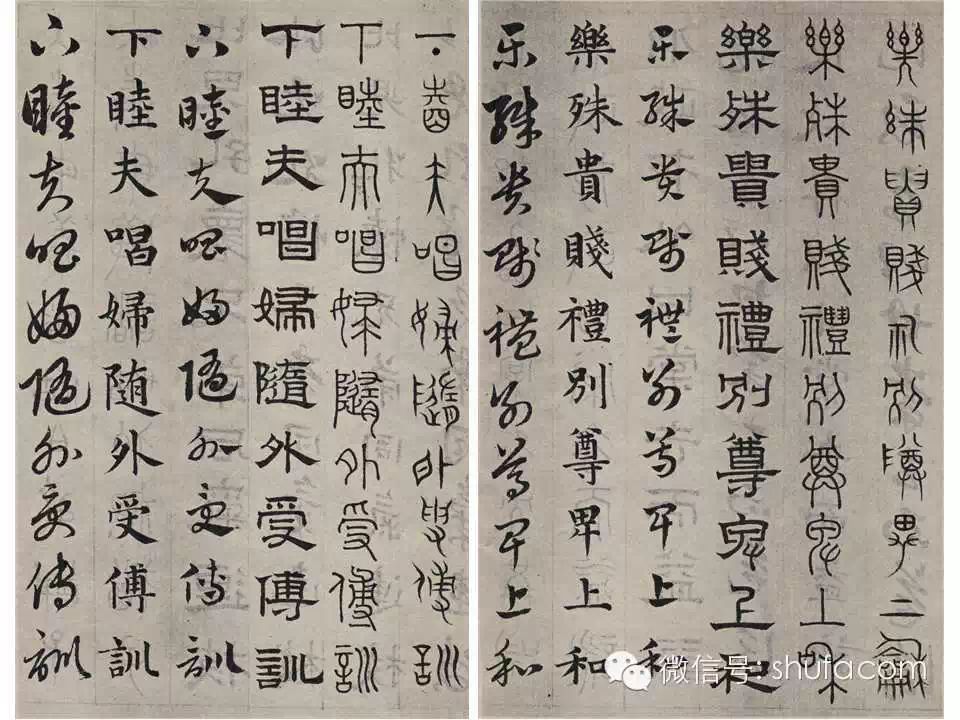 樂殊貴賤禮別尊卑上和
樂殊貴賤禮別尊卑上和
樂殊貴賤禮別尊卑上和
樂殊貴賤禮別尊卑上和
樂殊貴賤禮別尊卑上和
樂殊貴賤禮別尊卑上和
下睦夫唱婦隨外受傅訓
下睦夫唱婦隨外受傅訓
下睦夫唱婦隨外受傅訓
下睦夫唱婦隨外受傅訓
下睦夫唱婦随外受傅訓
下睦夫唱婦隨外受傅訓
微信号: shufacom